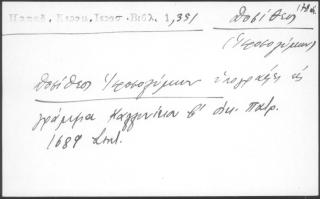 Παπαδ. Κεραμ. Ιεροσ. Βιβλ. 1,351
Δοσίθεος
(Ιεροσολύμων)
Δοσίθεος Ιεροσολύμων υπογράφει εις
γράμμα Καλλινίκου β' οικ. Πατρ.
1689